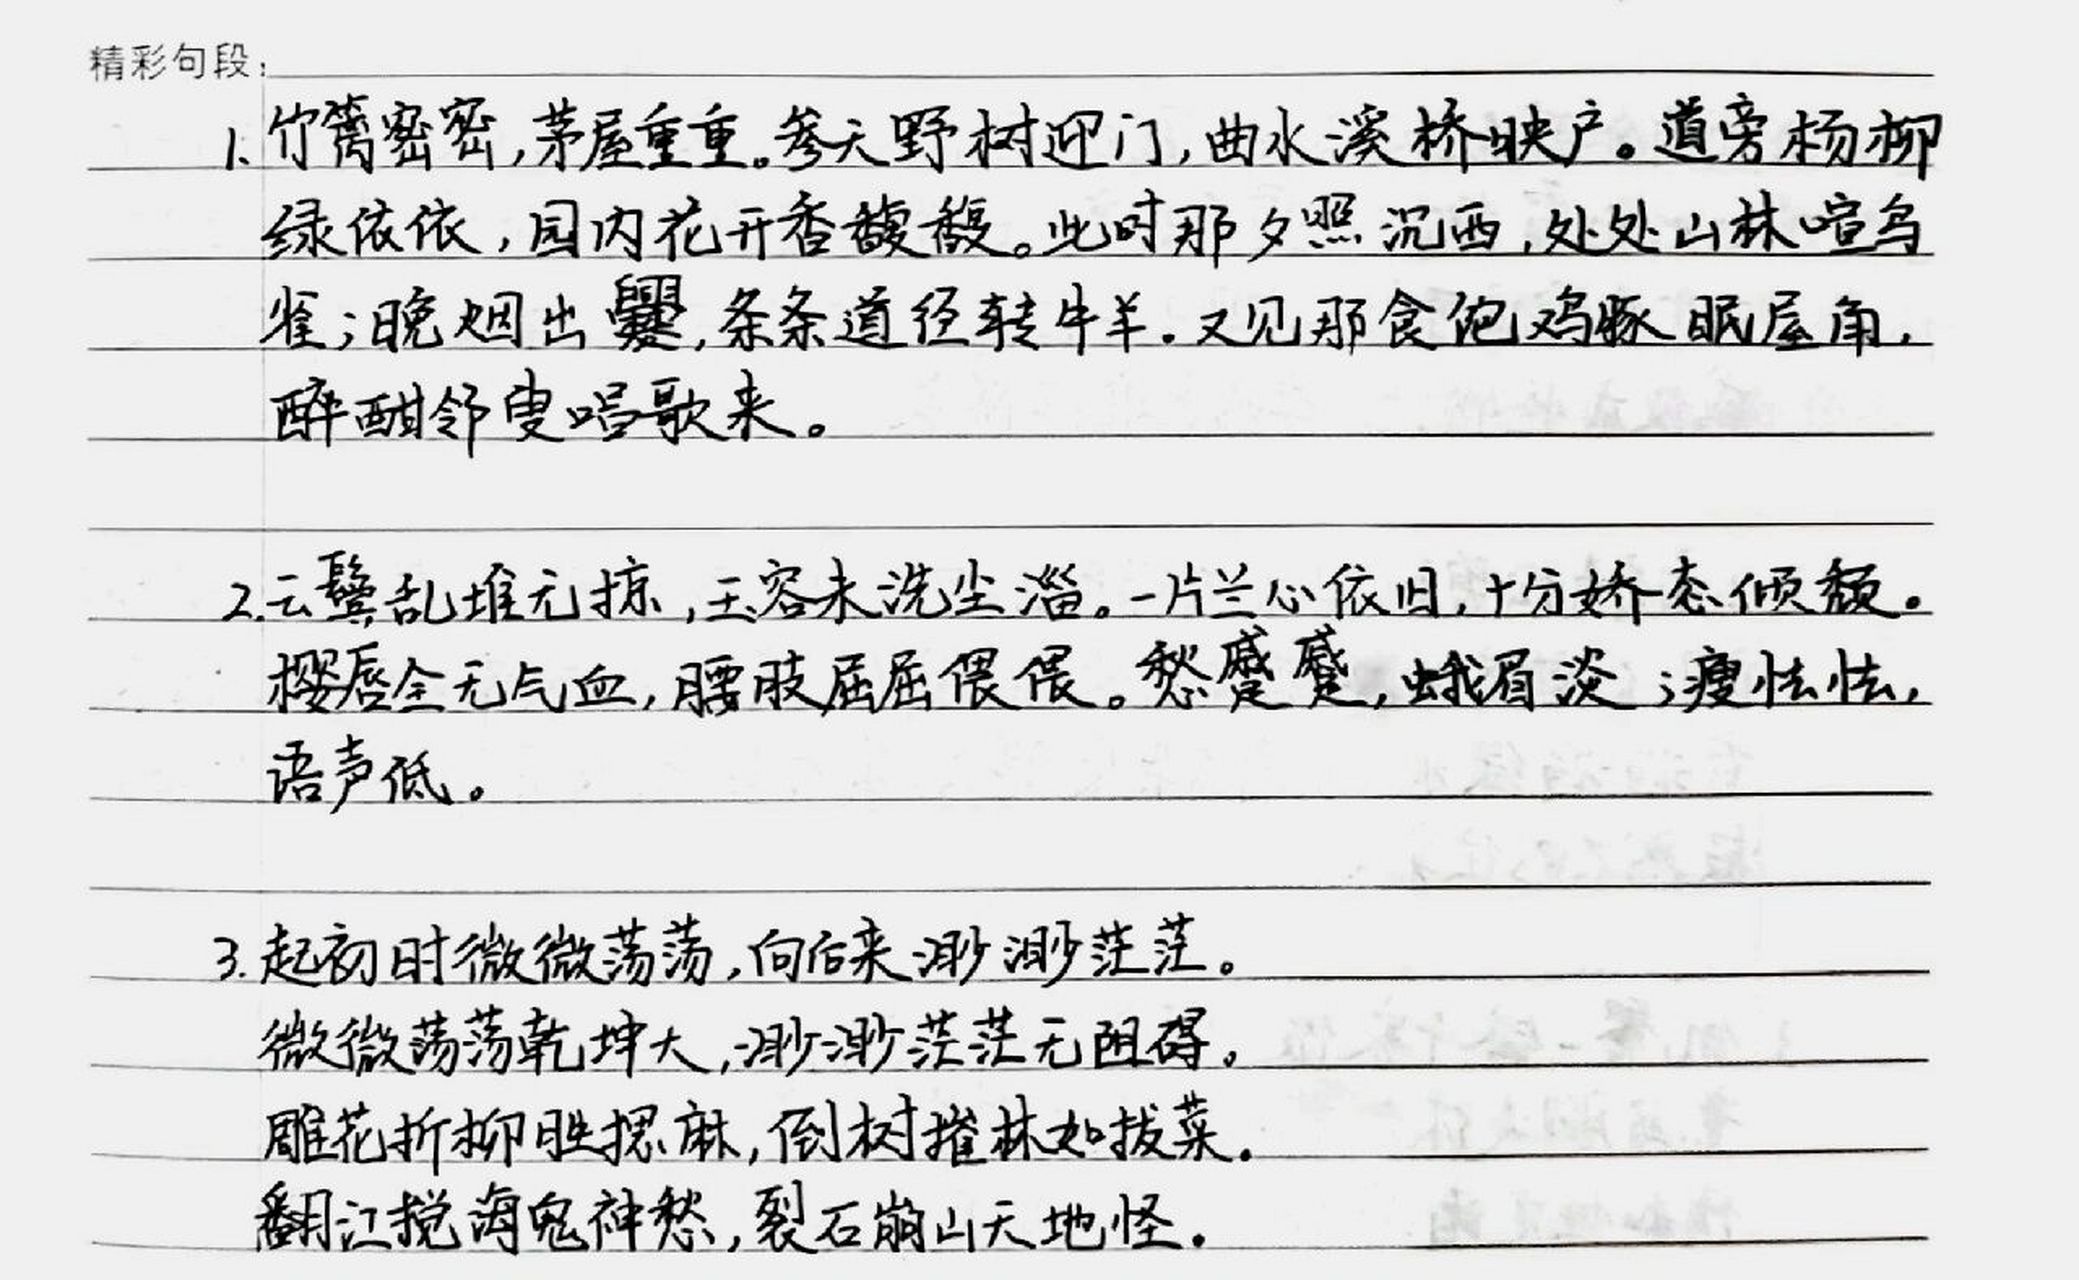 精彩句段:
1. 竹篱密密,茅屋重重。参天野树迎门,曲水溪桥映户。道旁杨柳
绿依依,园内花开香馥馥。此时那夕照沉西,处处山林喧鸟
雀;晚烟出爨,条条道径转牛羊.又见那食饱鸡豚眠屋角,
醉酣邻叟唱歌来。
2. 云鬓乱堆无掠,玉容未洗尘淄。一片兰心依旧,十分娇态倾颓。
樱唇全无气血,腰肢屈屈偎偎。愁蹙蹙,蛾眉淡;瘦怯怯,
语声低。
3. 起初时微微荡荡,向后来渺渺茫茫。
微微荡荡乾坤大,渺渺茫茫无阻碍。
雕花折柳胜揌麻,倒树摧林如拔菜.
翻江搅海鬼神愁,裂石崩山天地怪.